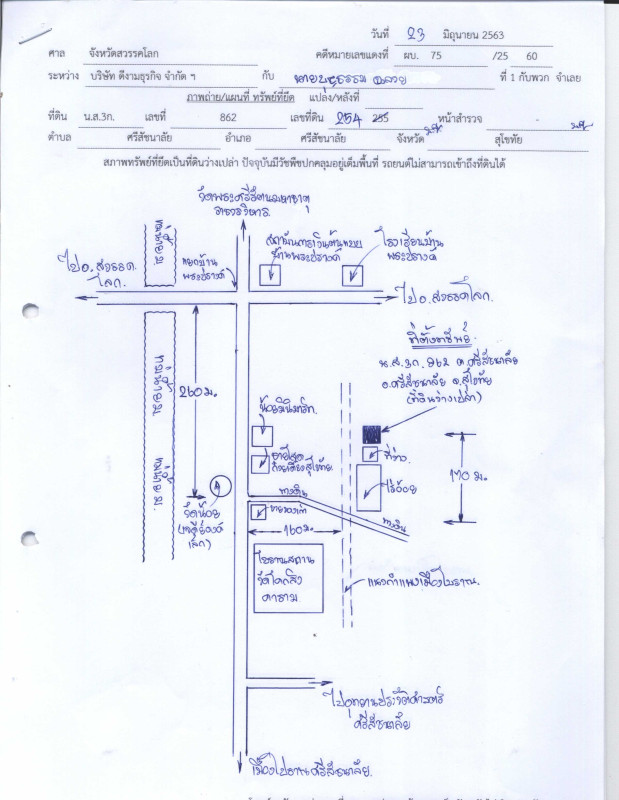 วันที่ 23 มิถุนายน 2563
ศาล จังหวัดสวรรคโลก คดีหมายเลขแดงที่ ผบ. 75 /25 60
ระหว่าง บริษัท ดีงามธุรกิจ จำกัด ฯ กับ ที่ 1 กับพวก จำเลย
ภาพถ่าย/แผนที่ ทรัพย์ที่ยึด แปลง/หลังที่
ที่ดิน น.ส.3ก. เลขที่ 862 เลขที่ดิน 254 255 หน้าสำรวจ
ตำบล ศรีสัชนาลัย อำเภอ ศรีสัชนาลัย จังหวัด สุโขทัย
สภาพทรัพย์ที่ยึดเป็นที่ดินว่างเปล่า ปัจจุบันมีวัชพืชปกคลุมอยู่เต็มพื้นที่ รถยนต์ไม่สามารถเข้าถึงที่ดินได้
วัดพระศรีรัตนมหาธาตุ
ราชวรวิหาร
สถาบันการเงินต้นแบบ
บ้านพระปรางค์
โรงเรียนบ้าน
พระปรางค์
ไปอ.สวรรค
โลก.
แยกบ้าน
พระปรางค์
แม่น้ำยม
ไปอ.สวรรคโลก.
ที่ตั้งทรัพย์.
น.ส.3ก. 862 ต.ศรีสัชนาลัย
อ.ศรีสัชนาลัย จ.สุโขทัย
(ที่ดินว่างเปล่า)
แม่น้ำยม
260 ม.
แม่น้ำยม.
ที่ว่าง
170 ม.
ไร่อ้อย
ทางดิน
ทางดิน
วัดน้อย
160 ม.
โบราณสถาน
วัดโคกสิง
คาราม
แนวกำแพงเมืองโบราณ.
ไปอุทยานประวัติศาสตร์
ศรีสัชนาลัย
เมืองโบราณศรีสัชนาลัย.